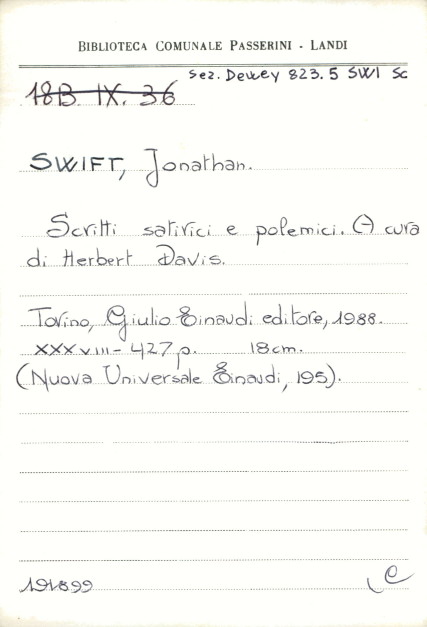 BIBLIOTECA COMUNALE PASSERINI - LANDI
Sez. Dewey 823.5 SWI Sc
18B. IX. 36
SWIFT, Jonathan.
Scritti satirici e polemici. A cura
di Herbert Davis.
Torino, Giulio Einaudi editore, 1988.
XXXVIII - 427 p. 18cm.
(Nuova Universale Einaudi, 195).